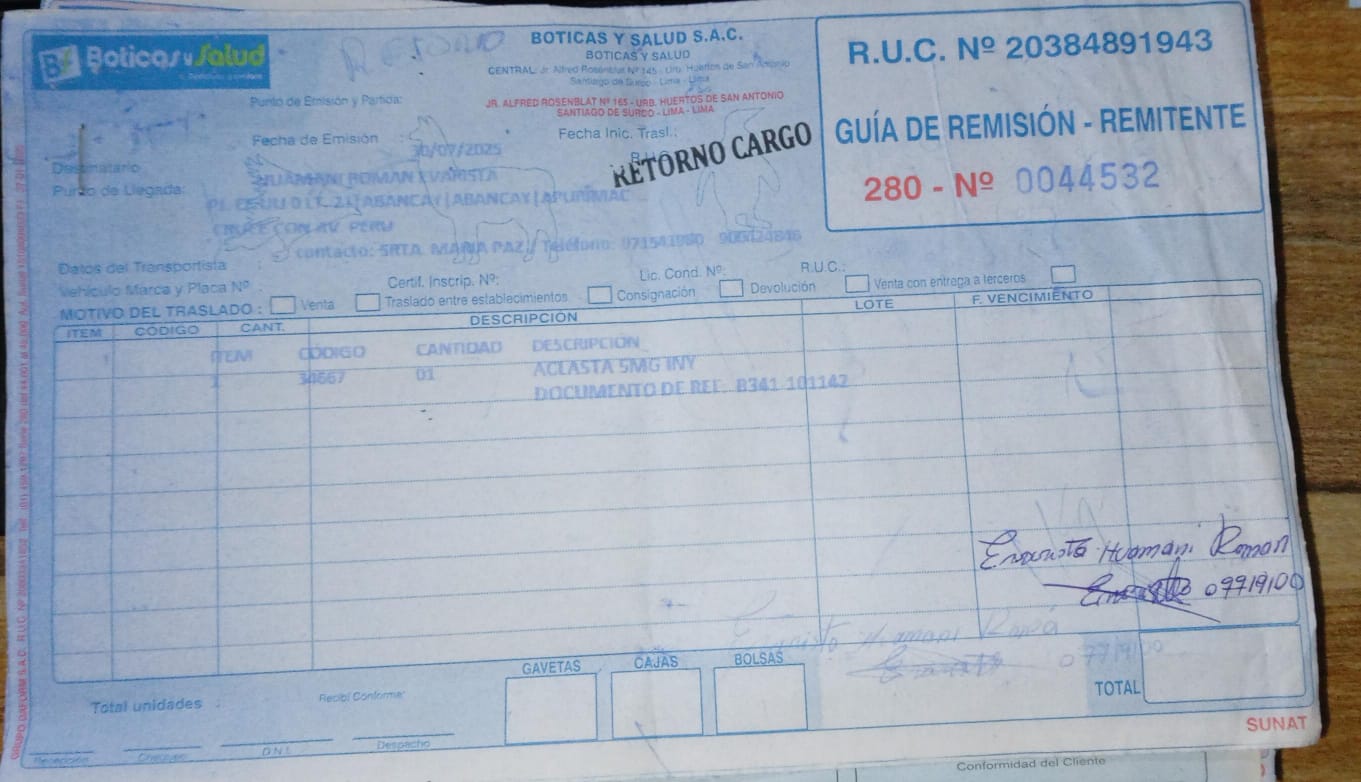 Boticas y Salud
RETORNO
BOTICAS Y SALUD S.A.C.
BOTICAS Y SALUD
CENTRAL: Jr. Alfred Rosenblat Nº 145 - Urb. Huertos de San Antonio
Santiago de Surco - Lima - Lima
Punto de Emisión y Partida:
JR. ALFRED ROSENBLAT Nº 165 - URB. HUERTOS DE SAN ANTONIO
SANTIAGO DE SURCO - LIMA - LIMA
R.U.C. Nº 20384891943
GUÍA DE REMISIÓN - REMITENTE
280 - Nº 0044532
Fecha de Emisión : 30/07/2025
Fecha Inic. Trasl.:
RETORNO CARGO
Destinatario
HUAMANI ROMAN
Punto de Llegada:
ABANCAY | ABANCAY | APURIMAC
CRUCE CON AV. PERU
contacto: SRTA. MARIA PAZ / Teléfono:
Datos del Transportista :
Vehículo Marca y Placa Nº
Certif. Inscrip. Nº:
Lic. Cond. Nº:
R.U.C.:
MOTIVO DEL TRASLADO : Venta Traslado entre establecimientos Consignación Devolución Venta con entrega a terceros
ITEM CÓDIGO CANT. DESCRIPCIÓN LOTE F. VENCIMIENTO
1 ITEM CÓDIGO CANTIDAD DESCRIPCION
1 34667 01 ACLASTA 5MG INY
DOCUMENTO DE REF. B341 101142
Huamani Roman
Huamani
GAVETAS CAJAS BOLSAS
Total unidades :
Recibí Conforme:
TOTAL
Recepción Chequeo D.N.I. Despacho
SUNAT
Conformidad del Cliente